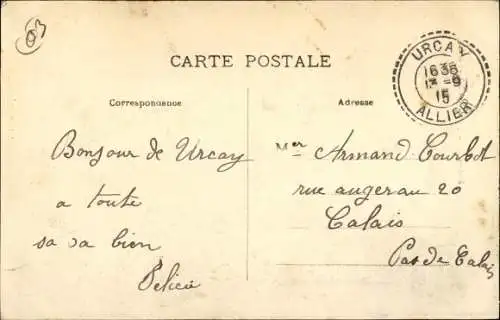 03
CARTE POSTALE
URCAY
1635
13-9
15
ALLIER
Correspondence
Adresse
Bonjour de Urcay
a toute
sa va bien
Felicie
Mer Armand Courbot
rue augerau 20
Calais
Pas de Calais